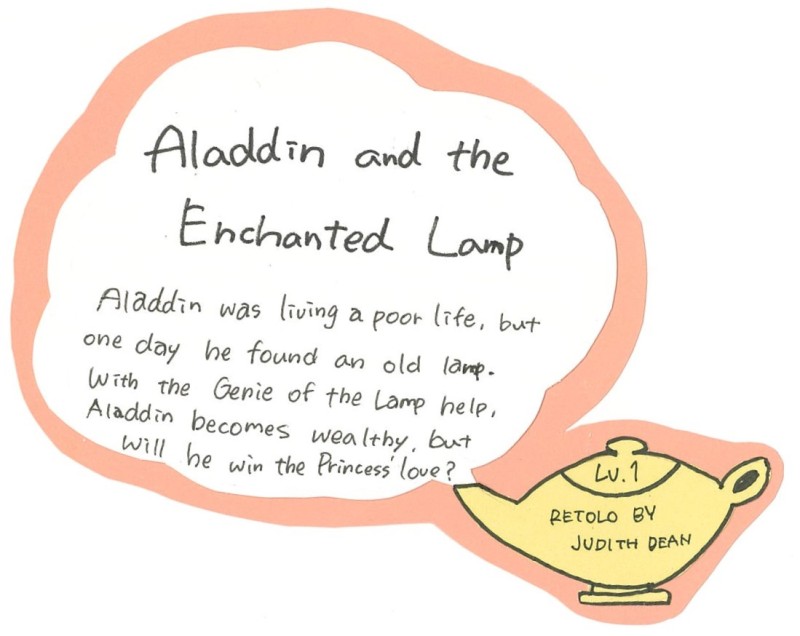 Aladdin and the
Enchanted Lamp
Aladdin was living a poor life, but
one day he found an old lamp.
With the Genie of the Lamp help,
Aladdin becomes wealthy, but
will he win the Princess' love?
LV.1
RETOLD BY
JUDITH DEAN